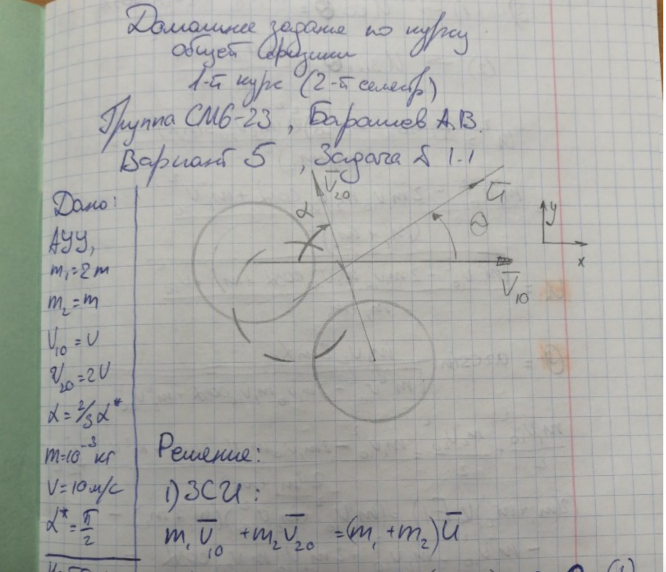 Домашнее задание по курсу
общей физики
1-й курс (2-й семестр)
Группа СМ6-23, Барашев А.В.
Вариант 5, Задача № 1.1
Дано:
АУУ,
m₁=2m
m₂=m
V₁₀=V
V₂₀=2V
α=2/3α*
m=10⁻³ кг
V=10 м/с
α*=π/2
V̄₂₀
α
Ū
Θ
V̄₁₀
y
x
Решение:
1) ЗСИ:
m₁V̄₁₀+m₂V̄₂₀=(m₁+m₂)Ū